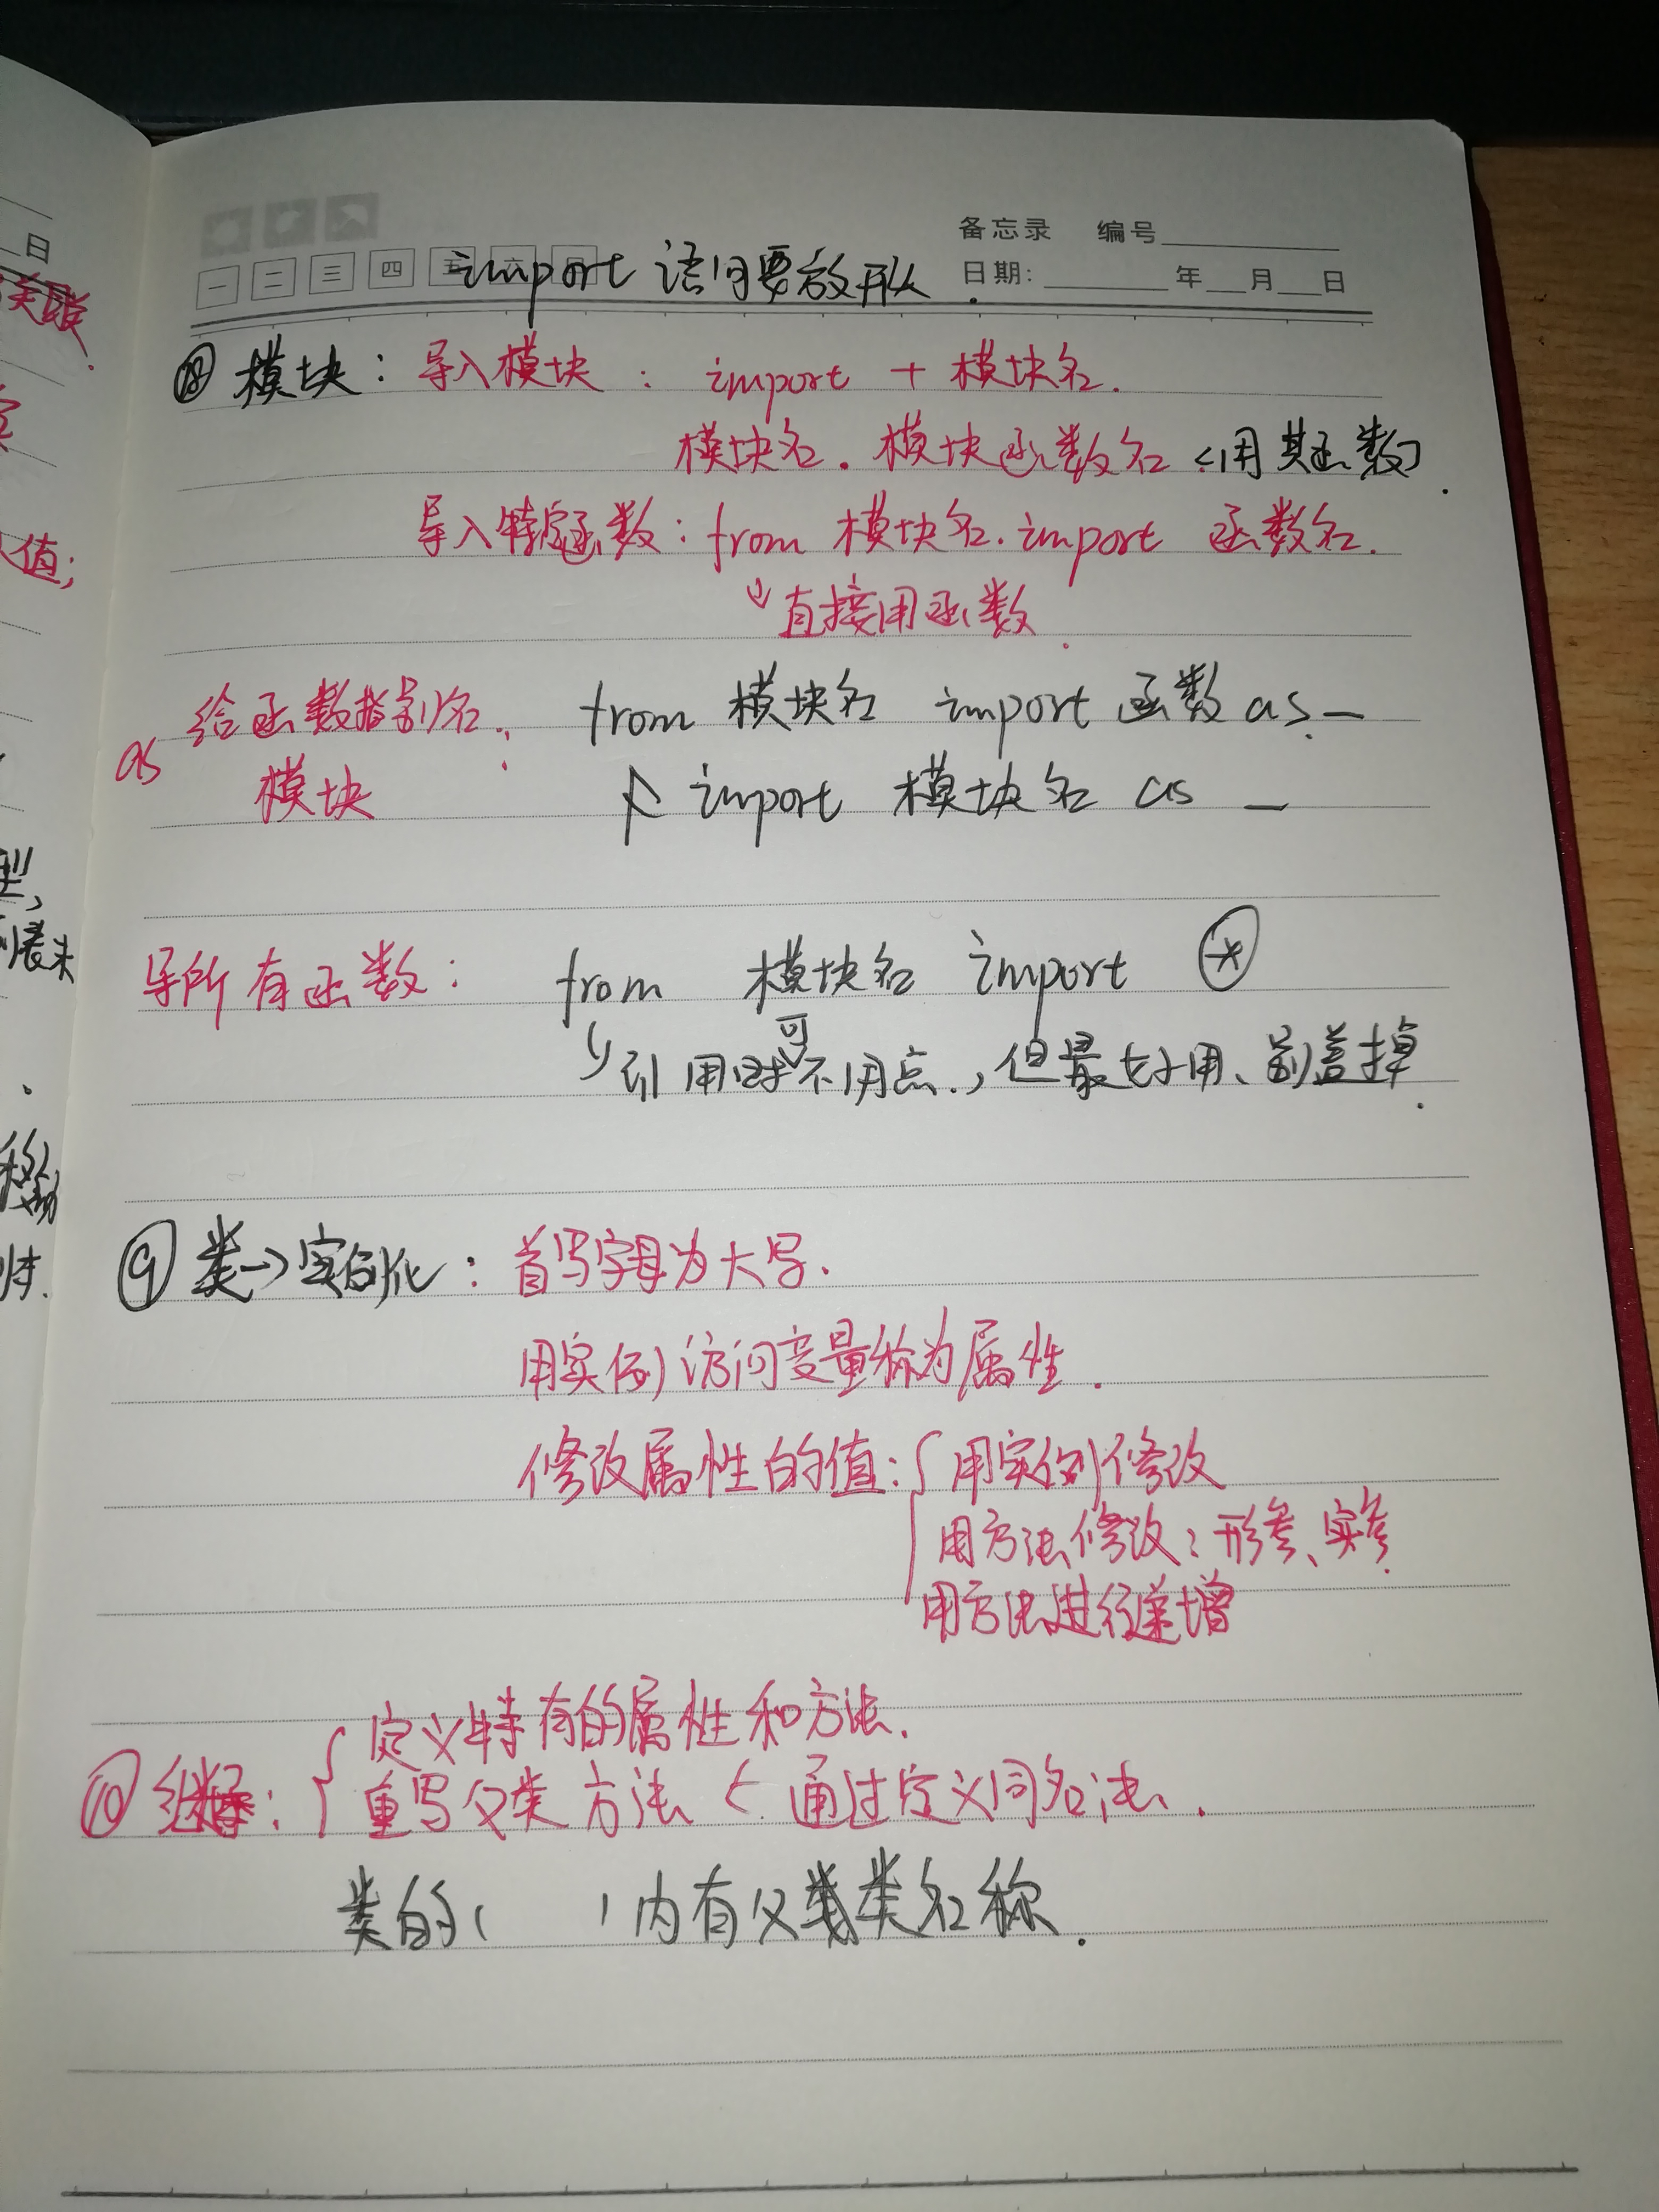 备忘录 编号
一 二 三 四 五 六 日
日期: 年 月 日
import 语句要放开头.
⑧ 模块: 导入模块: import + 模块名.
模块名. 模块函数名 (用其函数).
导入特定函数: from 模块名. import 函数名.
直接用函数.
给函数指别名: from 模块名 import 函数 as _
as 模块 import 模块名 as _
导所有函数: from 模块名 import *
引用时可不用点., 但最好用、
⑨ 类→实例化: 首写字母为大写.
用实例访问变量称为属性.
修改属性的值: { 用实例修改
用方法修改: 形参、实参.
用方法进行递增
定义特有的属性和方法.
⑩ 继承: { 重写父类方法 < 通过定义同名法.
类的( )内有父类类名称.
日
关联.
值;
型,
列表末
移动